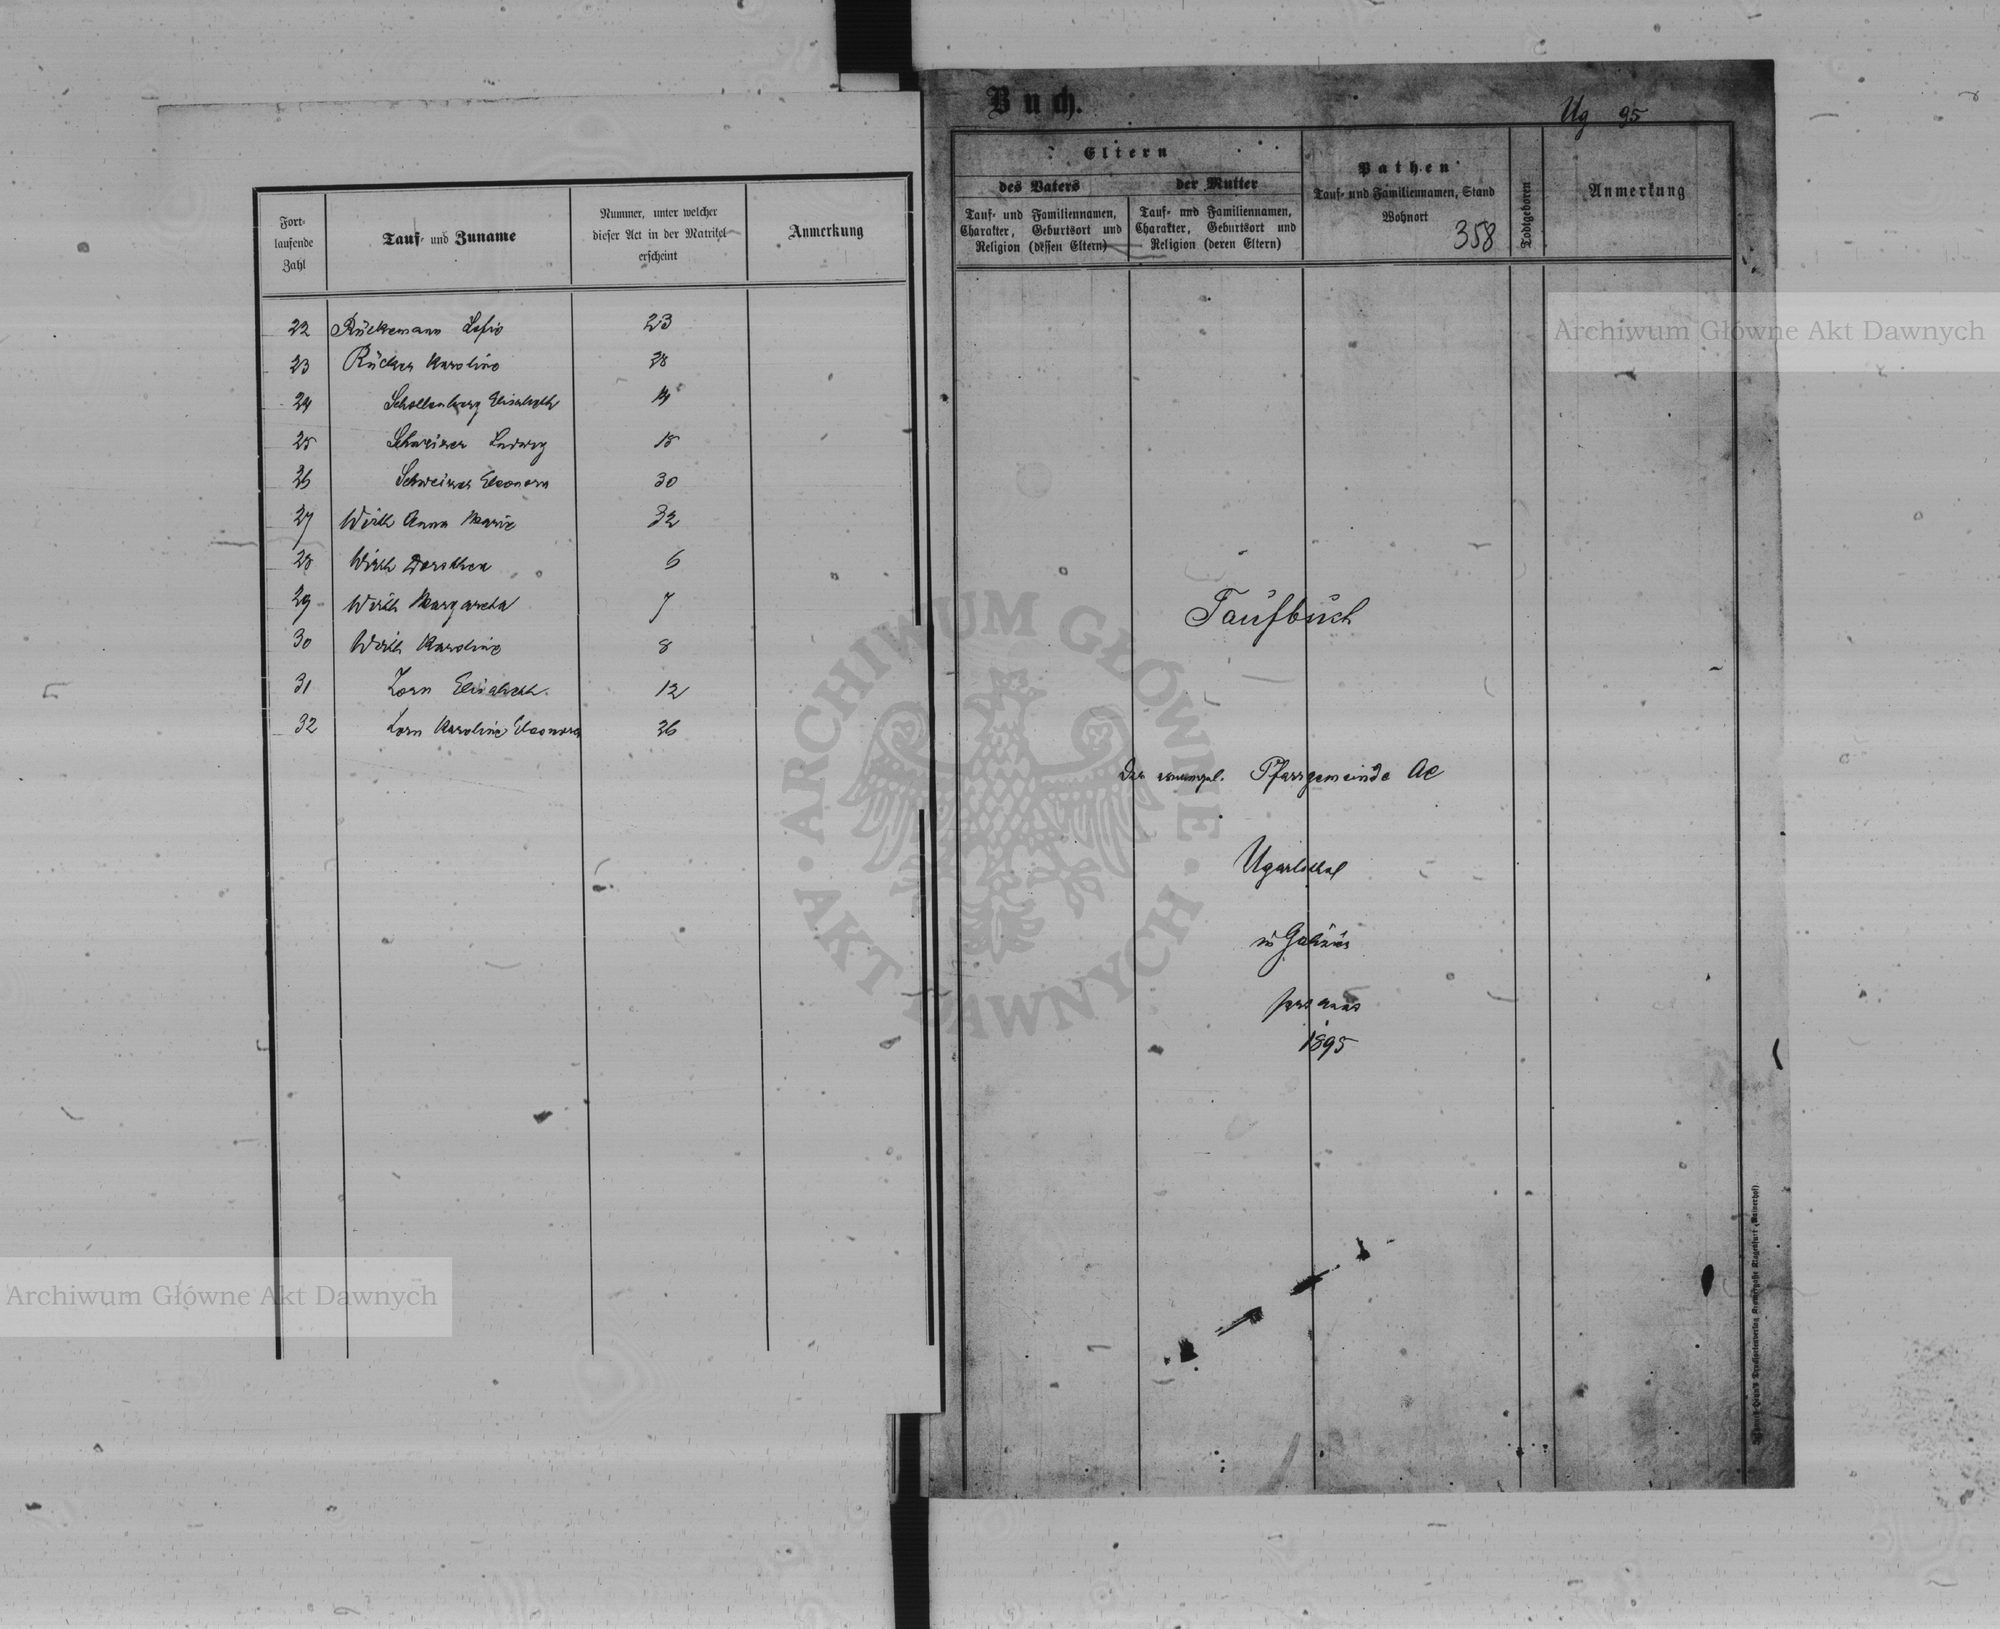 Fort-
laufende
Zahl
Tauf- und Zuname
Nummer, unter welcher
dieser Act in der Matrikel
erscheint
Anmerkung
22 Rückemann Sofie 23
23 Rücker Karoline 28
24 Schollenberg Elisabeth 14
25 Schweizer Ludwig 15
26 Schweizer Eleonora 30
27 Wirth Anna Marie 32
28 Wirth Dorothea 6
29 Wirth Margaretha 7
30 Wirth Karoline 8
31 Zorn Elisabeth. 12
32 Zorn Karoline Eleonora 26
Buch.
Ug 95
Eltern
des Vaters
der Mutter
Tauf- und Familiennamen,
Charakter, Geburtsort und
Religion (dessen Eltern)
Tauf- und Familiennamen,
Charakter, Geburtsort und
Religion (deren Eltern)
Pathen
Tauf- und Familiennamen, Stand
Wohnort
358
Todtgeboren
Anmerkung
Taufbuch
der evangel. Pfarrgemeinde AC
Ugartsthal
in Galizien
pro anno
1895
Archiwum Główne Akt Dawnych
Archiwum Główne Akt Dawnych
ARCHIWUM GŁÓWNE
AKT DAWNYCH